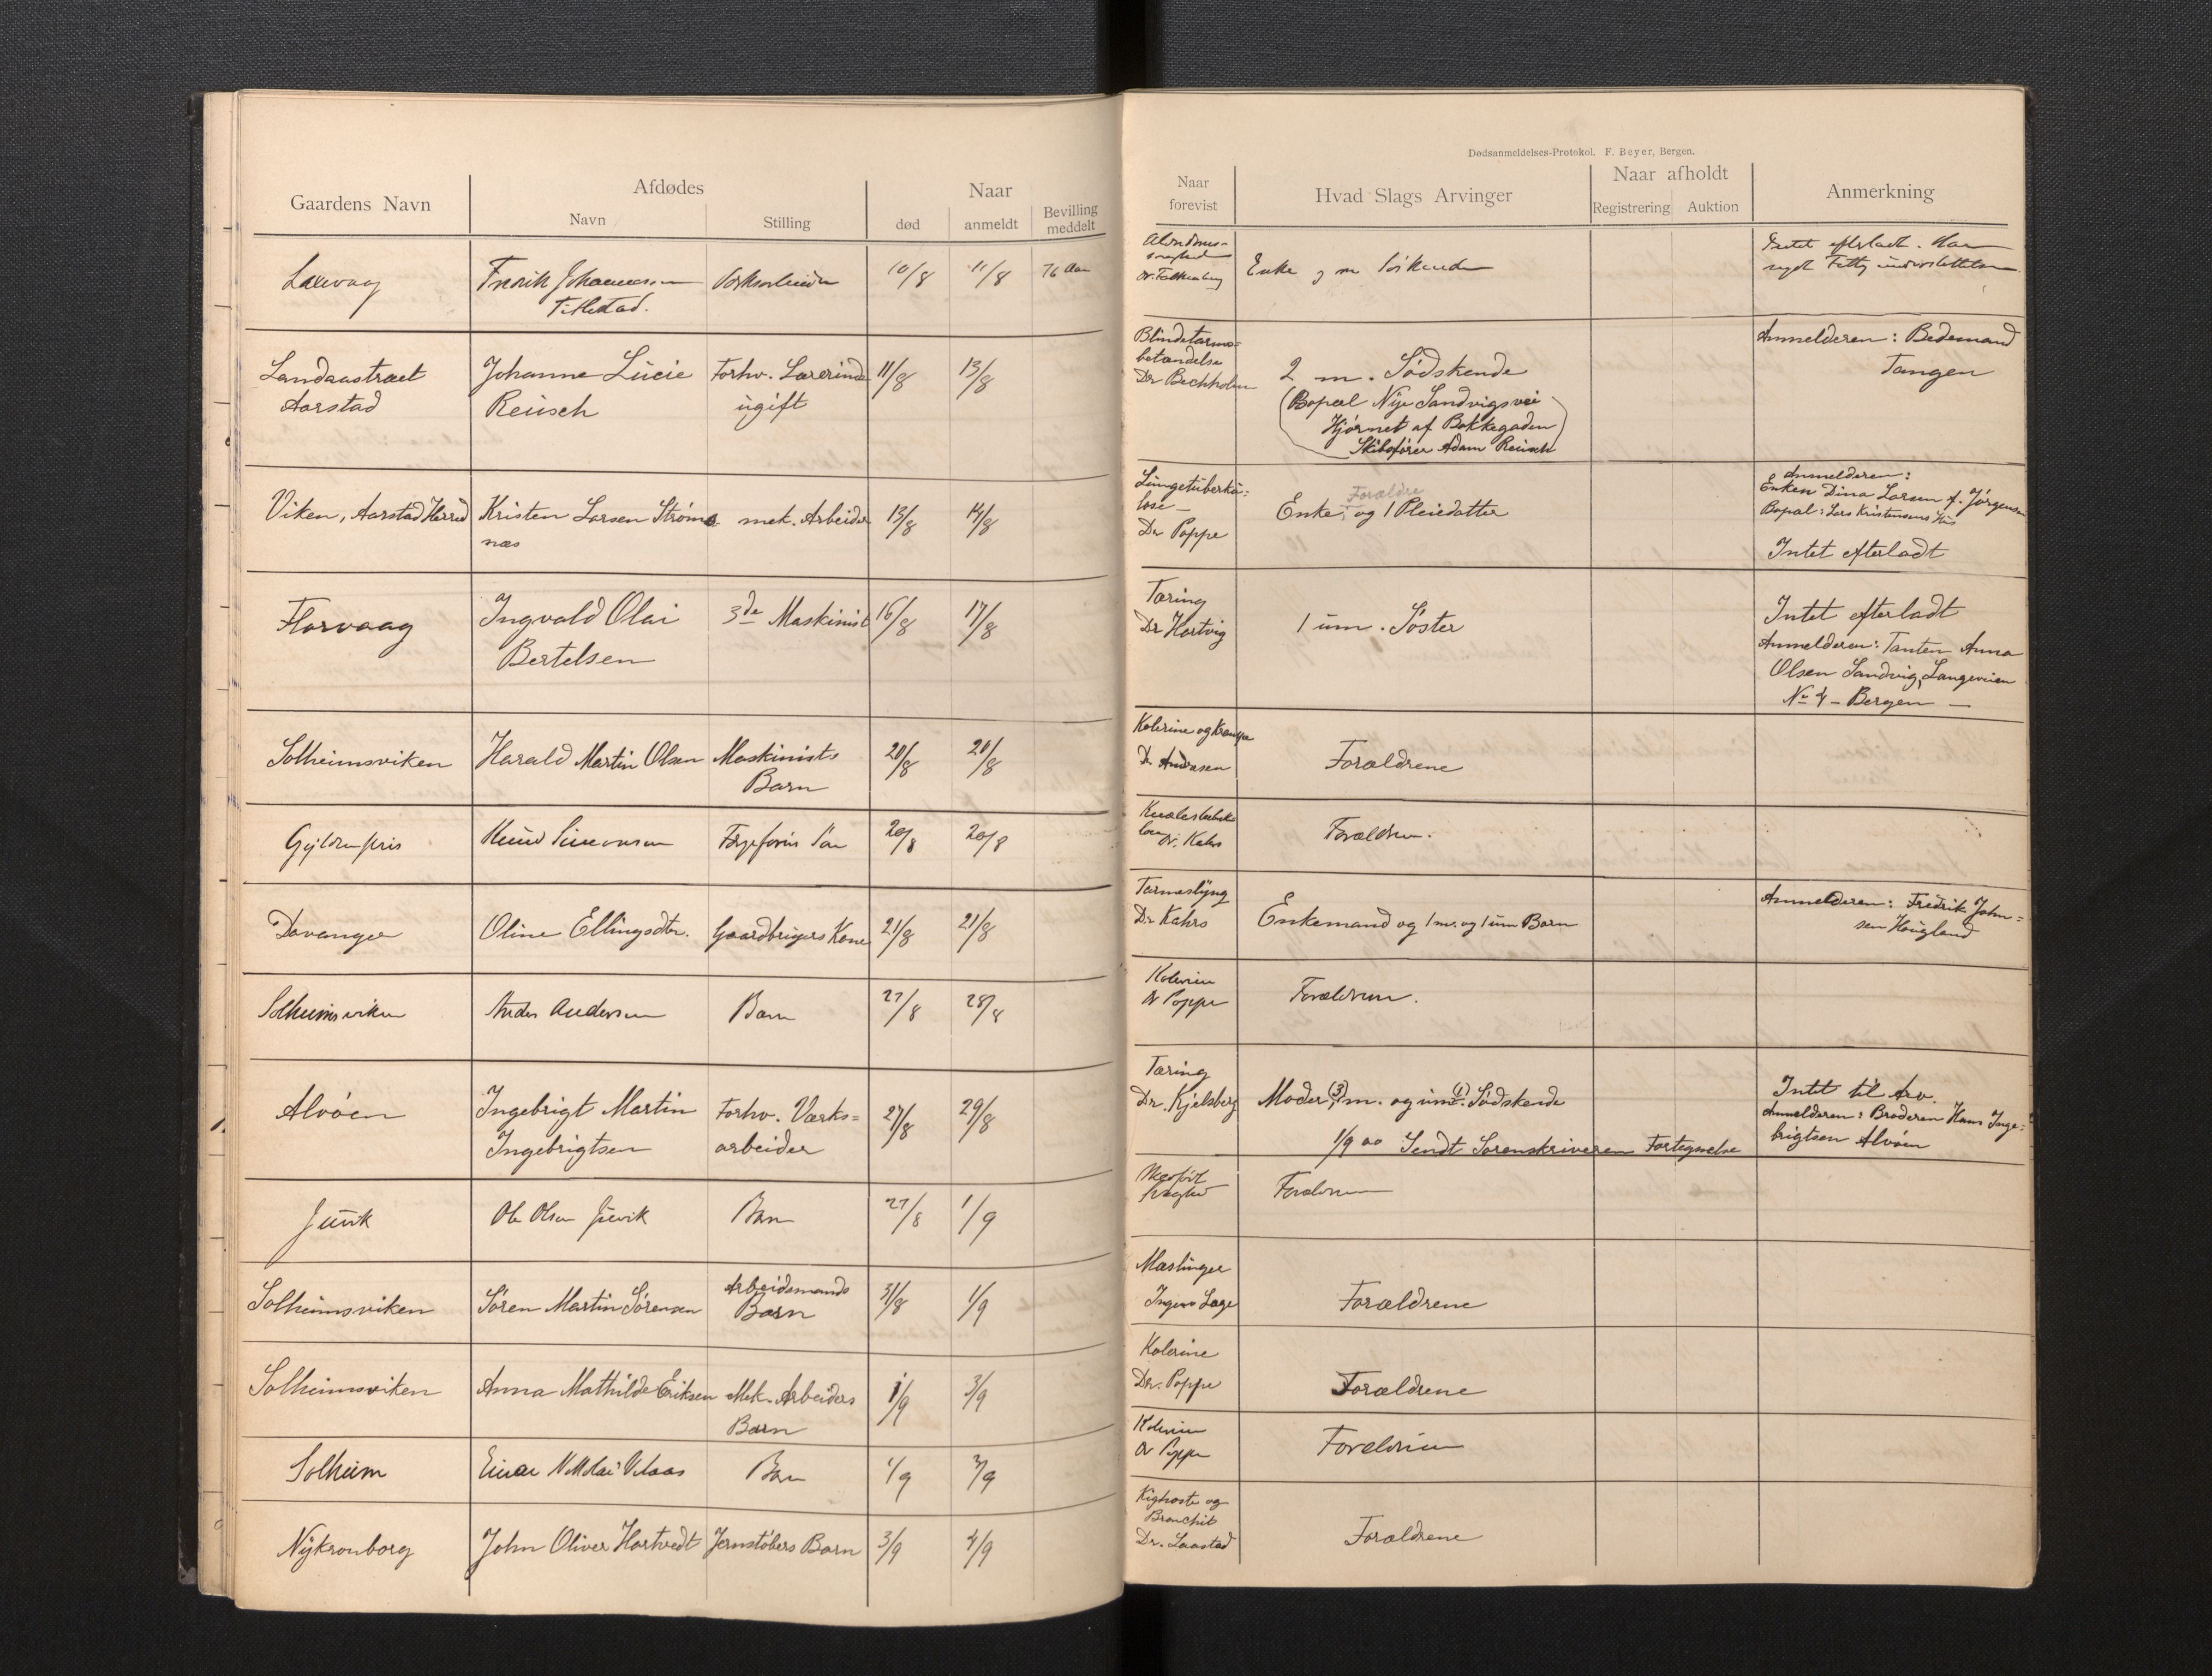 Dødsanmeldelses-Protokol. F. Beyer, Bergen.
Gaardens Navn
Afdødes
Navn
Stilling
Naar
død
anmeldt
Bevilling
meddelt
Naar
forevist
Hvad Slags Arvinger
Naar afholdt
Registrering
Auktion
Anmerkning
Laxevaag
Fredrik Johannessen
10/8
11/8
76 Aar
Alderdoms-
svaghed
Enke
Intet efterladt. Har
nydt Fattigunderstøttelse
Landaastræet
Aarstad
Johanne Lucie
Reusch
Forhv. Lærerinde
ugift
11/8
13/8
Blindetarms-
betændelse
Dr Bechholm
2 m. Sødskende
(Bopæl Nye Sandvigsvei
Hjørnet af Bakkegaden
Skibsfører Adam Reusch
Anmelderen: Bedemand
Tangen
Viken, Aarstad Herred
Kristen Larsen Strøm
næs
mek. Arbeider
13/8
14/8
Lungetuberku-
lose
Dr Poppe
Forældre
Enke, og 1 Pleiedatter
Anmelderen:
Enken Dina Larsen f. Jørgensen
Bopæl: Lars Kristensens Hus
Intet efterladt
Florvaag
Ingvald Olai
Bertelsen
3de Maskinist
16/8
17/8
Tæring
Dr Hartvig
1 um. Søster
Intet efterladt
Anmelderen: Tanten Anna
Olsen Sandvig, Langeveien
No 4 - Bergen —
Solheimsviken
Harald Martin Olsen
Maskinists
Barn
20/8
20/8
Kolerine og Krampe
Dr Andresen
Forældrene
Gyldenpris
Knud Simonsen
Søn
20/8
20/8
Dr. Kahrs
Forældrene.
Davanger
Oline Ellingsdtr.
Gaardbrugers Kone
21/8
21/8
Tarmeslyng
Dr Kahrs
Enkemand og 1 m. og 1 um Barn
Anmelderen: Fredrik John=
sen Haugland
Solheimsviken
Anders Andersen
Barn
27/8
28/8
Kolerine
Dr Poppe
Forældrene.
Alvøen
Ingebrigt Martin
Ingebrigtsen
Forhv. Værks=
arbeider
27/8
29/8
Tæring
Dr. Kjelsberg
Moder, (3) m. og (1) um. Sødskende
1/9 00 Sendt Sorenskriveren Fortegnelse
Intet til Arv.
Anmelderen: Broderen Hans Inge=
brigtsen Alvøen
Juvik
Ole Olsen Juvik
Barn
27/8
1/9
Medfødt
svaghed
Forældrene
Solheimsviken
Søren Martin Sørensen
Arbeidsmands
Barn
31/8
1/9
Mæslinger
Ingen Læge
Forældrene
Solheimsviken
Anna Mathilde Eriksen
Mek. Arbeiders
Barn
1/9
3/9
Kolerine
Dr. Poppe
Forældrene
Solheim
Einar Nikolai
Barn
1/9
3/9
Kolerine
Dr Poppe
Forældrene
Nykronborg
John Oliver Hartvedt
Jernstøbers Barn
3/9
4/9
Kighoste og
Bronchit
Dr. Laastad
Forældrene